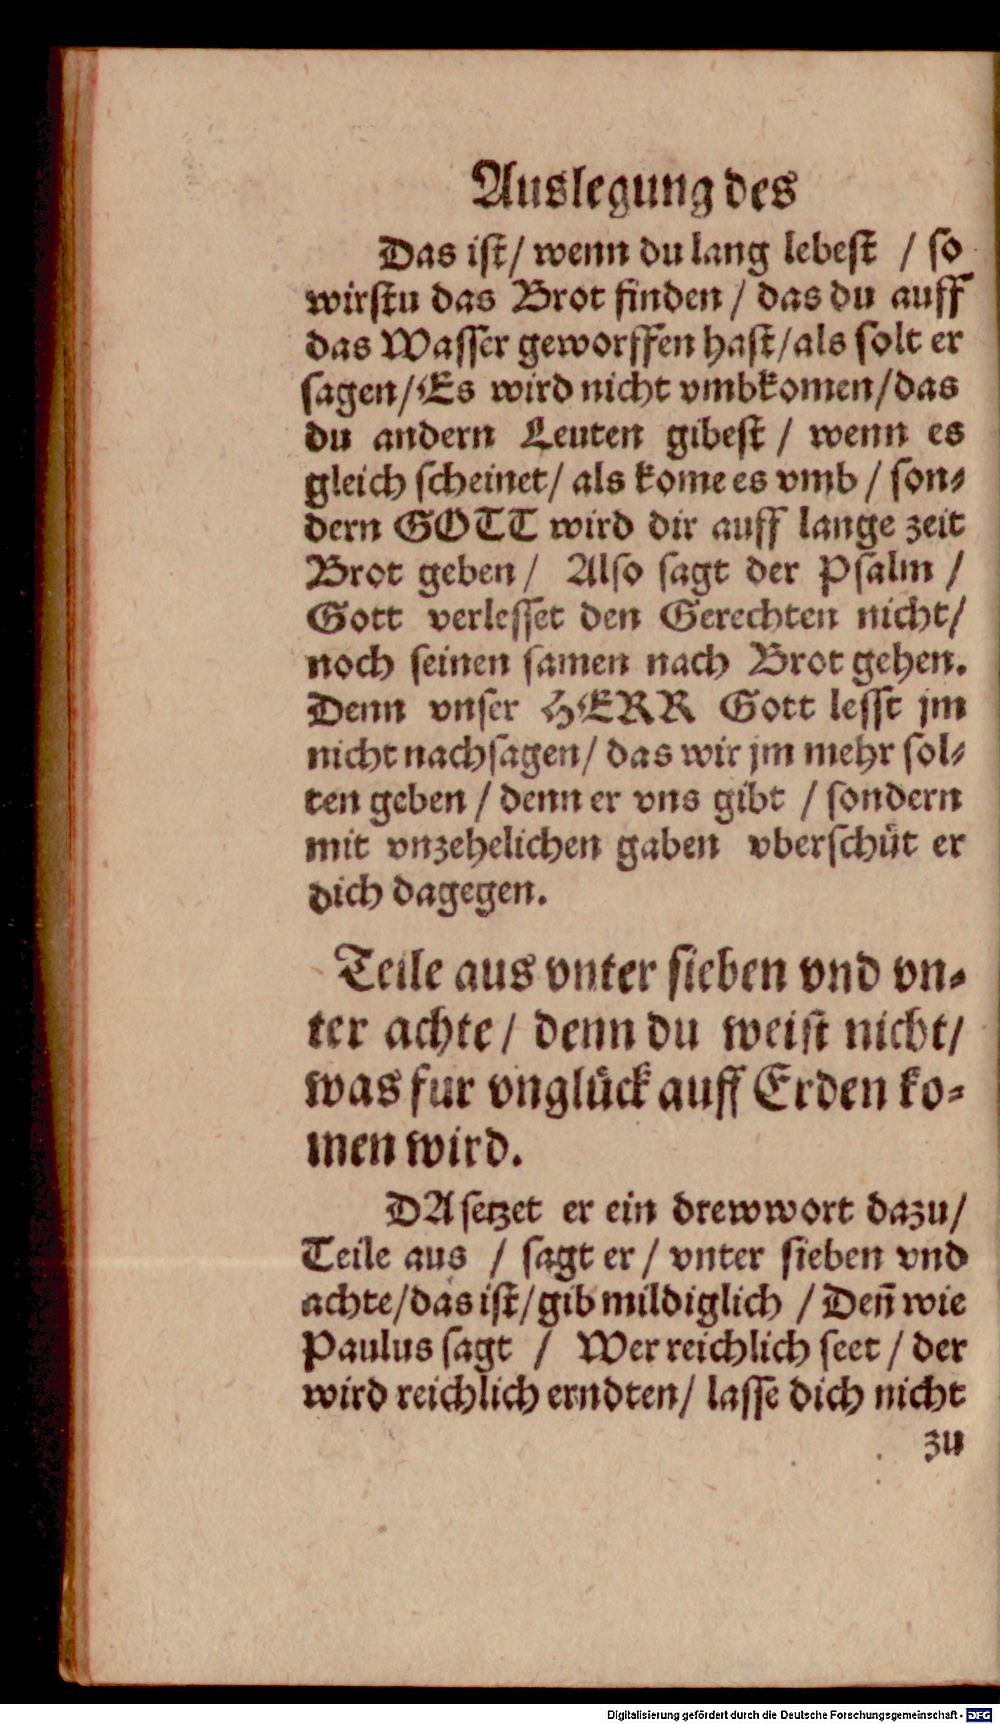 Auslegung des
Das ist/ wenn du lang lebest / so
wirstu das Brot finden / das du auff
das Wasser geworffen hast/als solt er
sagen/Es wird nicht vmbkomen/das
du andern Leuten gibest / wenn es
gleich scheinet/ als kome es vmb / son-
dern GOTT wird dir auff lange zeit
Brot geben / Also sagt der Psalm /
Gott verlesset den Gerechten nicht/
noch seinen samen nach Brot gehen.
Denn vnser HERR Gott lesst jm
nicht nachsagen/ das wir jm mehr sol-
ten geben / denn er vns gibt / sondern
mit vnzehelichen gaben vberschüt er
dich dagegen.
Teile aus vnter sieben vnd vn-
ter achte/ denn du weist nicht/
was fur vnglück auff Erden ko-
men wird.
DA setzet er ein drewwort dazu/
Teile aus / sagt er / vnter sieben vnd
achte/das ist/gib mildiglich / Deñ wie
Paulus sagt / Wer reichlich seet / der
wird reichlich erndten/ lasse dich nicht
zu
Digitalisierung gefördert durch die Deutsche Forschungsgemeinschaft - DFG